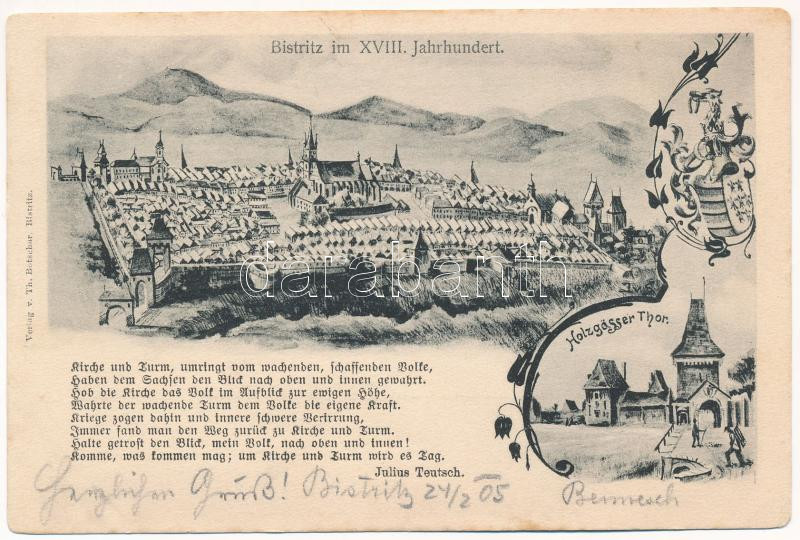 Bistritz im XVIII. Jahrhundert.
Verlag v. Th. Botschar, Bistritz.
darabanth
Holzgässer Thor.
Kirche und Turm, umringt vom wachenden, schaffenden Volke,
Haben dem Sachsen den Blick nach oben und innen gewahrt.
Hob die Kirche das Volk im Aufblick zur ewigen Höhe,
Wahrte der wachende Turm dem Volke die eigene Kraft.
Kriege zogen dahin und innere schwere Verirrung,
Immer fand man den Weg zurück zu Kirche und Turm.
Halte getrost den Blick, mein Volk, nach oben und innen!
Komme, was kommen mag; um Kirche und Turm wird es Tag.
Julius Teutsch.
Herzlichen Gruß! Bistritz 24/2 05